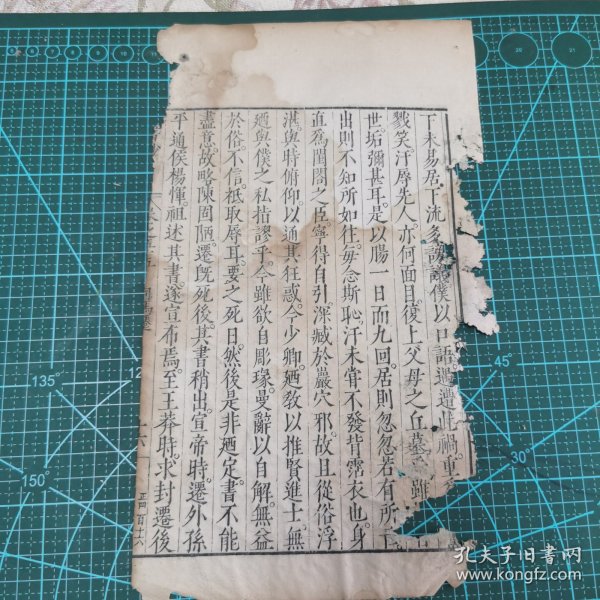 下未易居下流多謗議僕以口語遇遭此禍重
戮笑汙辱先人亦何面目復上父母之丘墓 雖
世垢彌甚耳是以腸一日而九回居則忽忽若有所亡
出則不知所如往毎念斯恥汗未甞不發背霑衣也身
直爲閨閤之臣寧得自引深藏於巖穴邪故且從俗浮
湛與時俯仰以通其狂惑今少卿廼敎以推賢進士無
廼與僕之私指謬乎今雖欲自彫瑑曼辭以自解無益
於俗不信秪取辱耳要之死日然後是非廼定書不能
盡意故略陳固陋遷旣死後其書稍出宣帝時遷外孫
平通侯楊惲祖述其書遂宣布焉至王莽時求封遷後
十六
135°
150°
45°
30°
20
21
孔夫子旧书网
www.kongfz.com